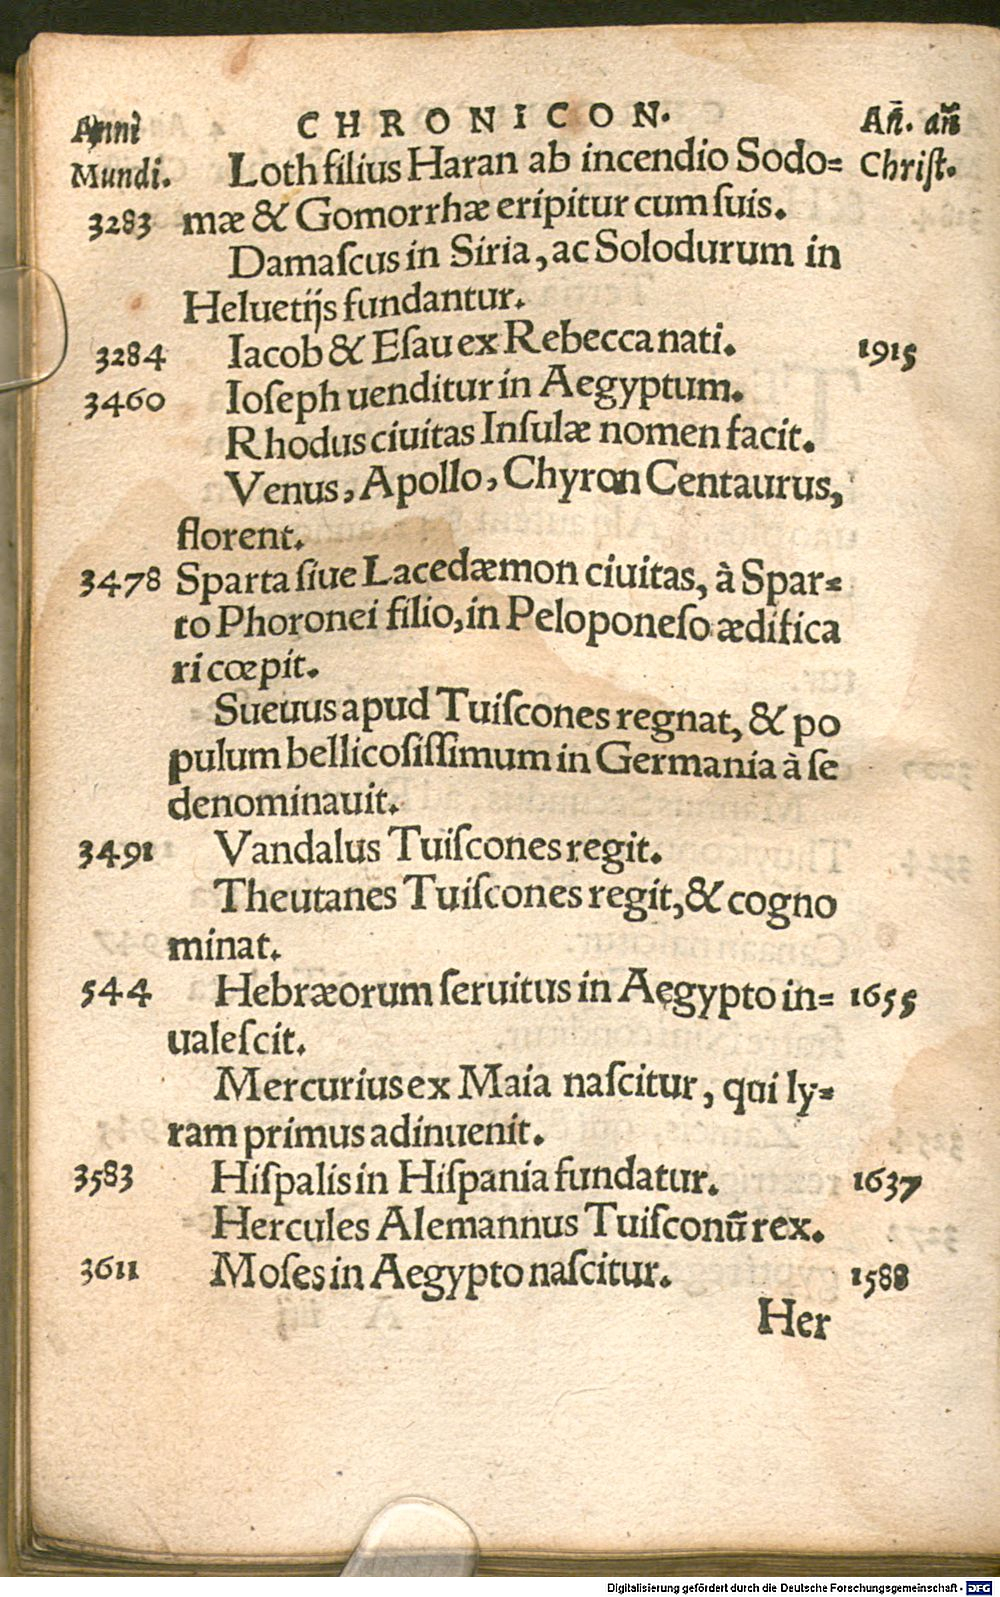 Anni CHRONICON. Añ. añ
Mundi. Loth filius Haran ab incendio Sodo= Chriſt.
3283 mæ & Gomorrhæ eripitur cum ſuis.
Damaſcus in Siria, ac Solodurum in
Heluetijs fundantur.
3284 Iacob & Eſau ex Rebecca nati. 1915
3460 Ioſeph uenditur in Aegyptum.
Rhodus ciuitas Inſulæ nomen facit.
Venus, Apollo, Chyron Centaurus,
florent.
3478 Sparta ſiue Lacedæmon ciuitas, à Spar=
to Phoronei filio, in Peloponeſo ædifica
ri cœpit.
Sueuus apud Tuiſcones regnat, & po
pulum bellicoſiſſimum in Germania à ſe
denominauit.
3491 Vandalus Tuiſcones regit.
Theutanes Tuiſcones regit, & cogno
minat.
544 Hebræorum ſeruitus in Aegypto in= 1655
ualeſcit.
Mercurius ex Maia naſcitur, qui ly=
ram primus adinuenit.
3583 Hiſpalis in Hiſpania fundatur. 1637
Hercules Alemannus Tuiſconū rex.
3611 Moſes in Aegypto naſcitur. 1588
Her
Digitalisierung gefördert durch die Deutsche Forschungsgemeinschaft - DFG